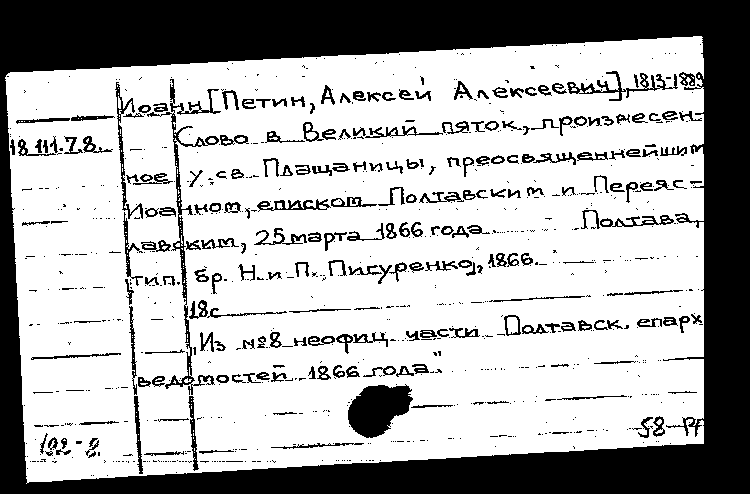 Иоанн [Петин, Алексей Алексеевич], 1813-1889
18.111.7.8.
Слово в Великий пяток, произнесен-
ное у св. Плащаницы, преосвященнейшим
Иоанном, епископом Полтавским и Переяс-
лавским, 25 марта 1866 года. Полтава,
тип. бр. Н. и П. Пигуренко, 1866.
18с
"Из №8 неофиц. части Полтавск. епарх
ведомостей 1866 года."
58-РГ